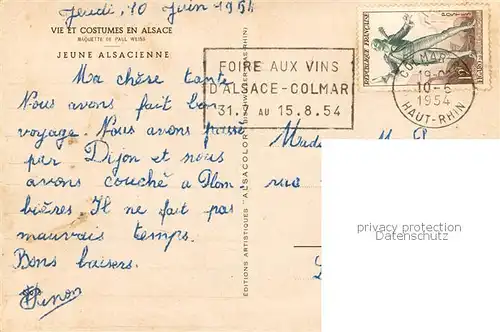 Jeudi, 10 Juin 1954
VIE ET COSTUMES EN ALSACE
MAQUETTE DE PAUL WEISS
JEUNE ALSACIENNE
Ma chère tante
Nous avons fait bon
voyage. Nous avons passé
par Dijon et nous
avons couché à Plom-
bières. Il ne fait pas
mauvais temps.
Bons baisers.
FOIRE AUX VINS
D'ALSACE-COLMAR
31.7 AU 15.8.54
REPUBLIQUE FRANÇAISE
COLMAR
10-6
1954
HAUT-RHIN
EDITIONS ARTISTIQUES "ALSACOLOR"
rue
privacy protection
www.oldthing.de